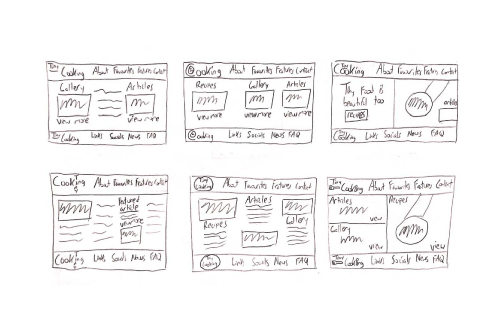 Tiny Cooking About Favourites Features Contact
Gallery Articles
view more view more
Tiny Cooking Links Socials News FAQ
Cooking About Favourites Features Contact
Recipes Gallery Articles
view more view more view more
Cooking Links Socials News FAQ
Tiny Cooking About Favourites Features Contact
Tiny Food is
beautiful too
recipes
articles
Tiny Cooking Links Socials News FAQ
Cooking About Favourites Features Contact
Featured
article
view more
Cooking Links Socials News FAQ
Tiny Cooking About Favourites Features Contact
Articles
Recipes Gallery
Tiny Cooking Links Socials News FAQ
Tiny Cooking About Favourites Features Contact
Articles Recipes
view
Gallery
view view
Tiny Cooking Links Socials News FAQ